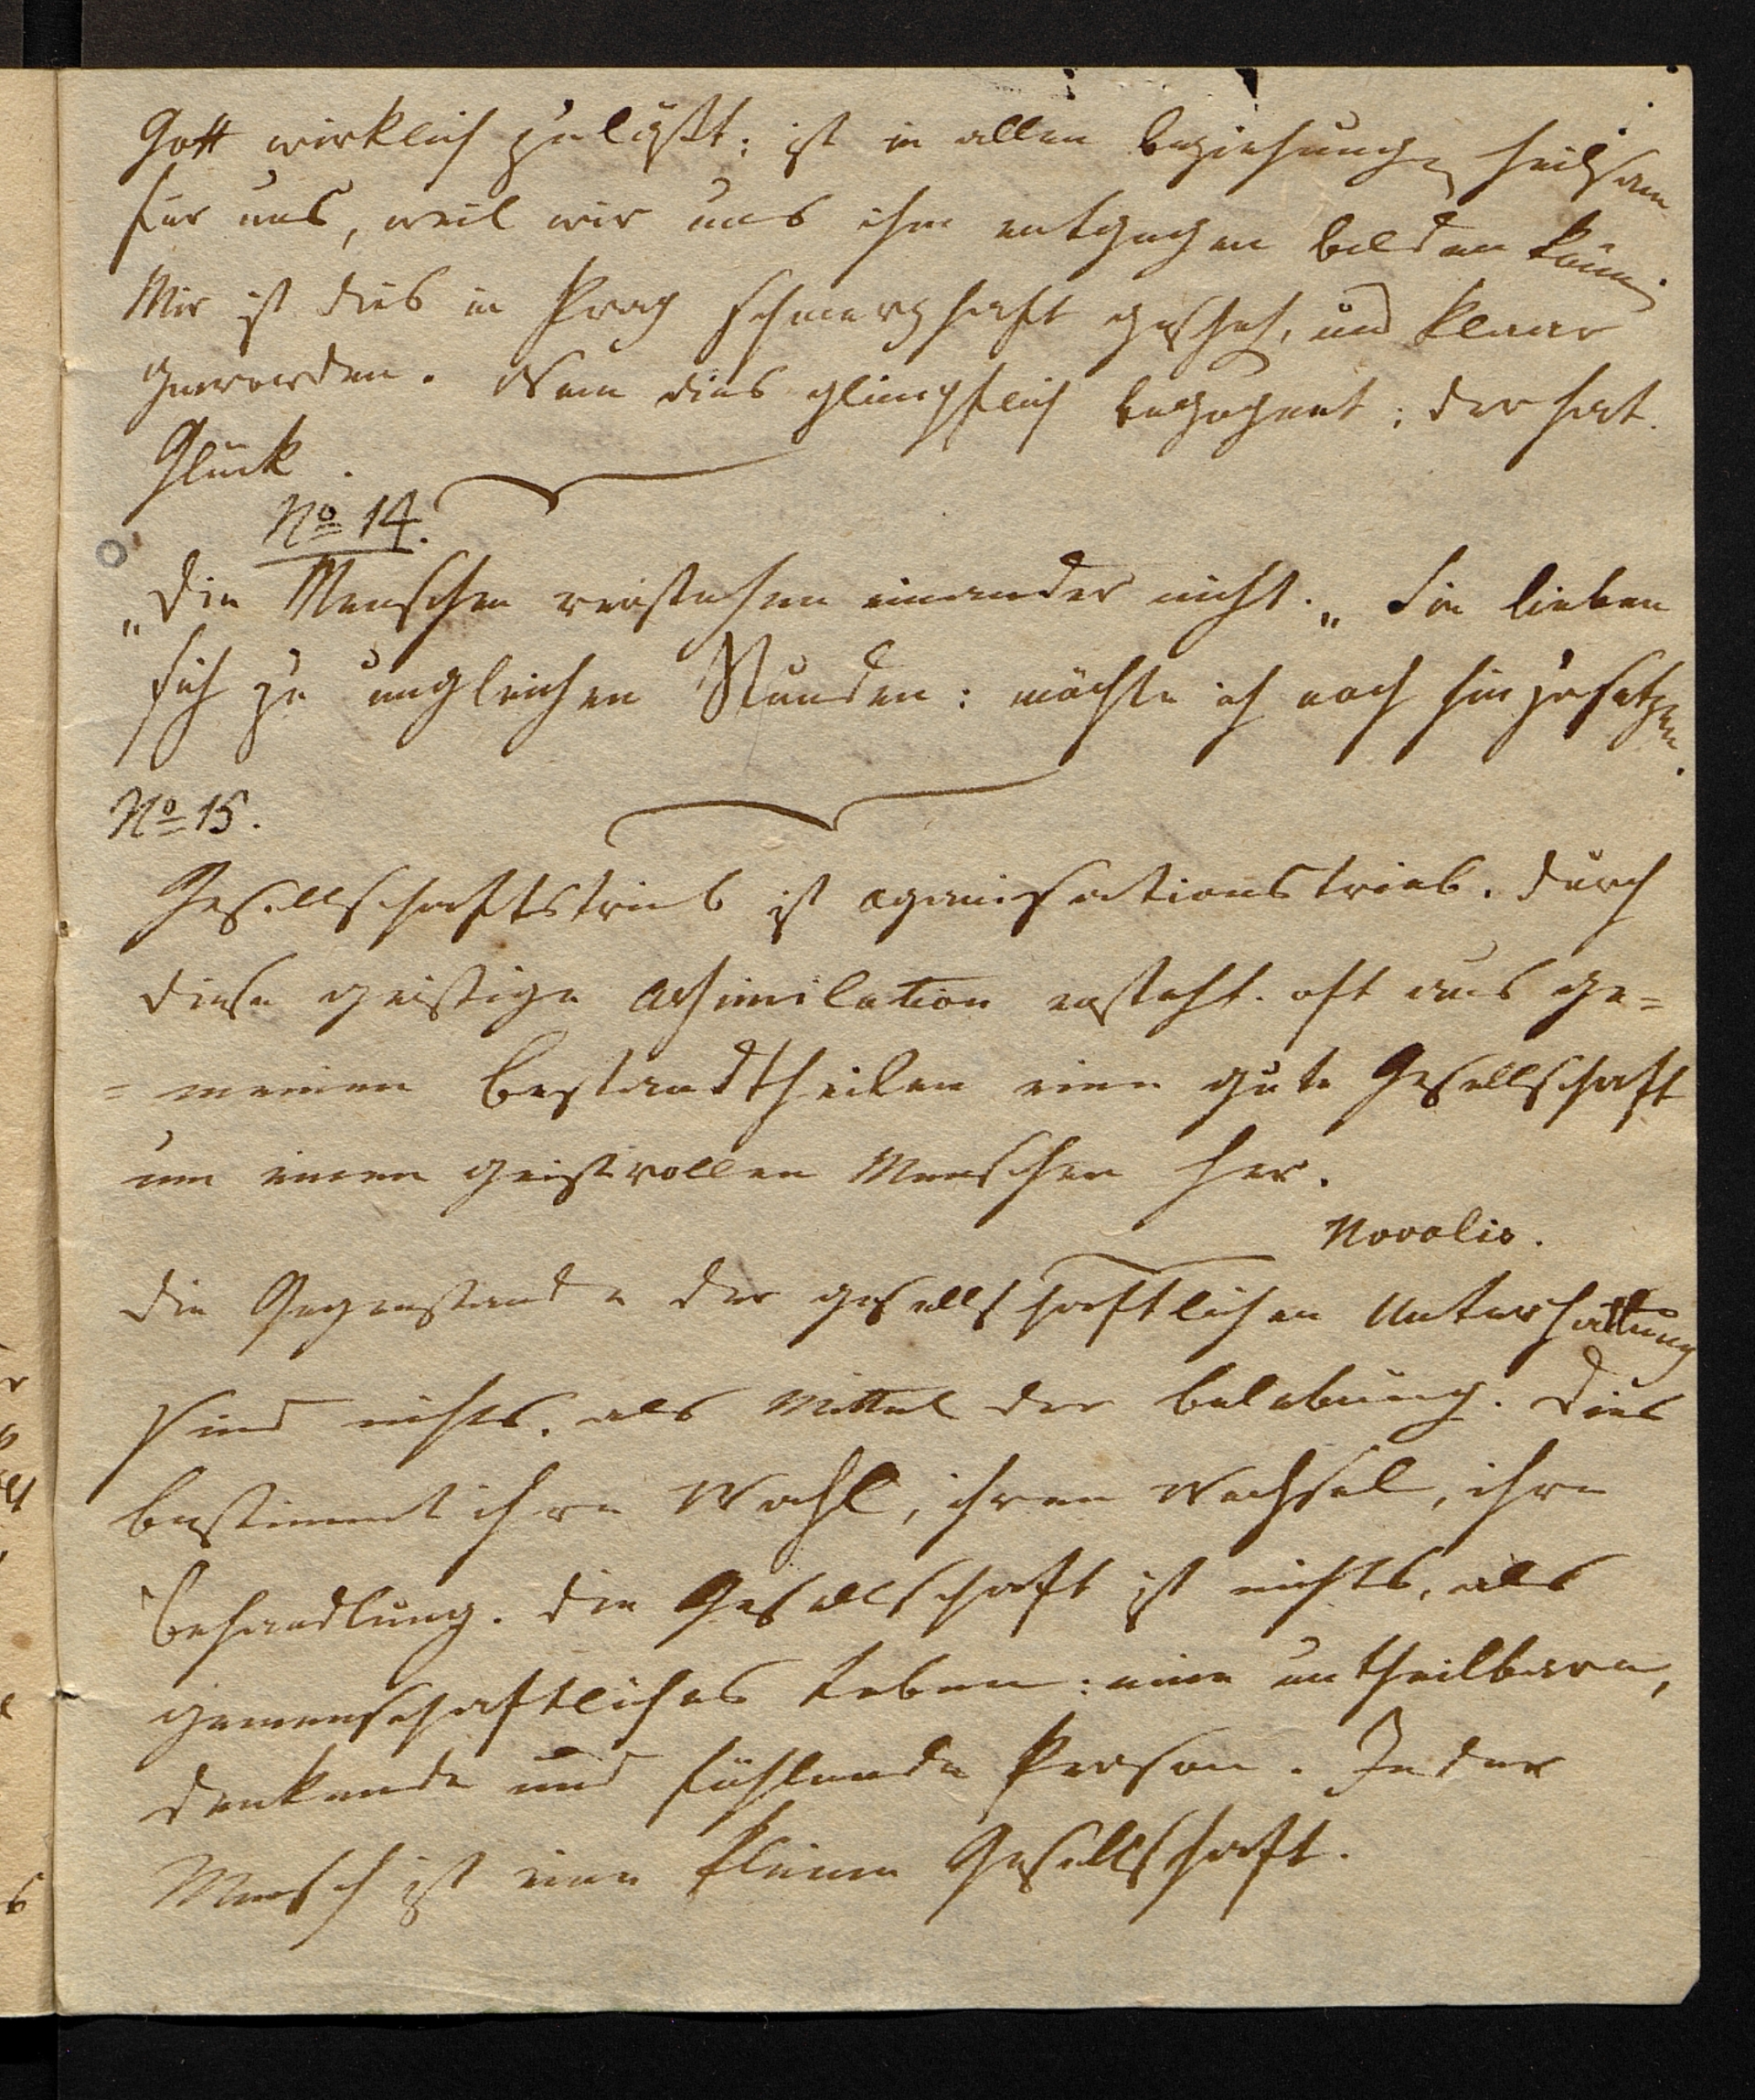 Gott wirklich zuläßt; ist in allen beziehungen heilsam
für uns, weil wir uns ihm entgegen bilden könn.
Mir ist dies in Prag schmerzhaft gescheh, und klaar
geworden. Wem dies glimpflich begegnet; der hat
Glück.
No 14.
„Die Menschen verstehen einander nicht.„ Sie lieben
sich zu ungleichen Stunden: möchte ich noch hinzusetzen.
No 15.
Gesellschaftstrieb ist oganisationstrieb. Durch
diese geistige Assimilation ensteht oft aus ge=
=meinen Bestandtheilen eine gute Gesellschaft
um einen geistvollen Menschen her.
Novalis.
Die Gegenstande der gesellschaftlichen Unterhaltung
sind nichts, als Mittel der belebung. Dies
bestimmt ihre Wahl, ihren Wechsel, ihre
Behandlung. Die Gesellschaft ist nichts, als
gemeinschaftliches Leben: eine untheilbare,
denkende und fühlende Person. Jeder
Mensch ist eine kleine Gesellschaft.